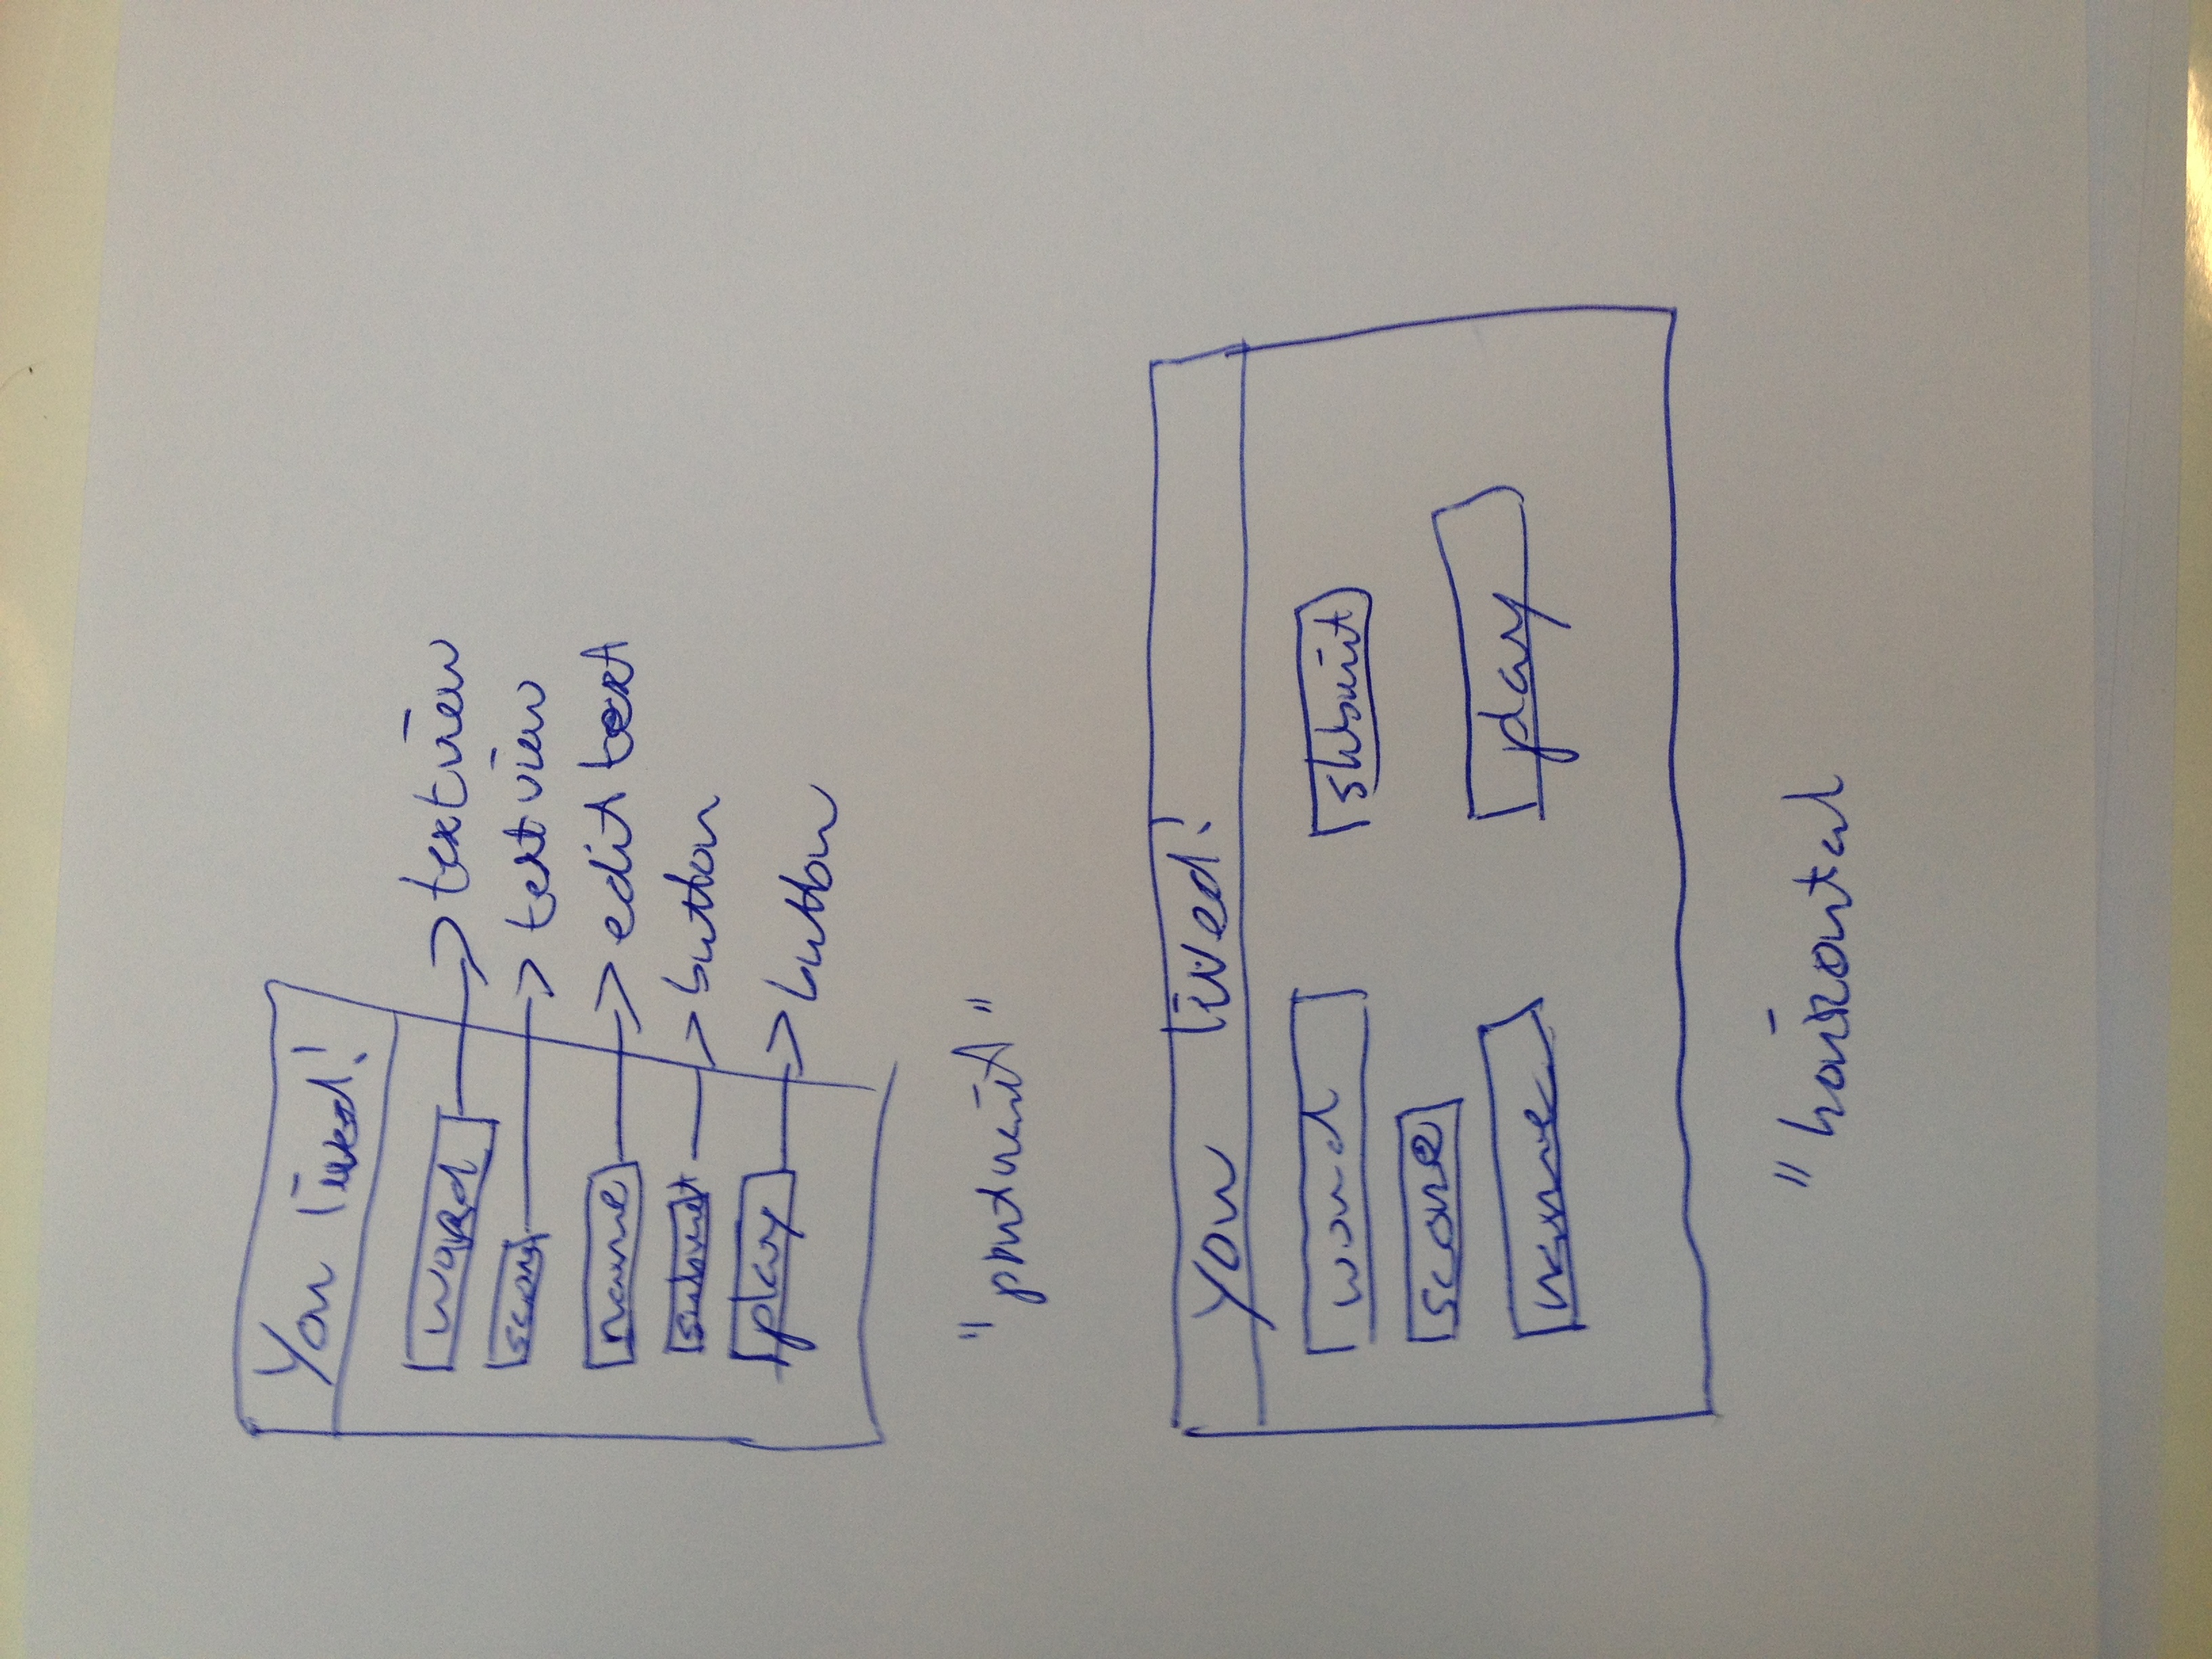 You lived!
word → textview
score → textview
name → edit text
submit → button
play → button
"portrait"
You lived!
word submit
score
name play
"horizontal